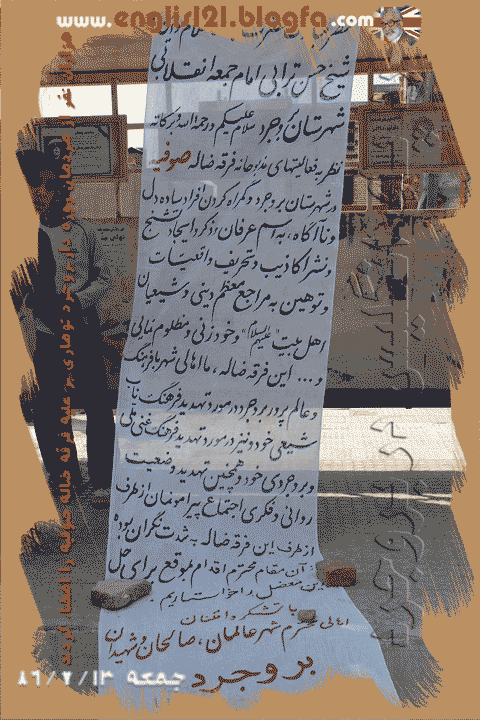 www.englisi21.blogfa.com
شیخ حسن ترابی امام جمعه انقلابی
شهرستان بروجرد سلام علیکم و رحمة الله و برکاته
نظر به فعالیتهای مذبوحانه فرقه ضاله صوفیه
در شهرستان بروجرد و گمراه کردن افراد ساده دل
و ناآگاه، به اسم عرفان، ذکر و ایجاد تشنج
و نشر اکاذیب و تحریف واقعیات
و توهین به مراجع معظم دینی و شیعیان
اهل بیت "علیهم السلام" و خودزنی و مظلوم نمایی
و ... این فرقه ضاله، ما اهالی شهر با فرهنگ
و عالم پرور بروجرد در مورد تهدید فرهنگ ناب
شیعی خود و نیز در مورد تهدید فرهنگ غنی ملی
و بروجردی خود و همچنین تهدید وضعیت
روانی و فکری اجتماع پیرامونمان از طرف
از طرف این فرقه ضاله به شدت نگران بوده
از آن مقام محترم اقدام بموقع برای حل
این معضل را خواستاریم.
با تشکر و امتنان
اهالی محترم شهر عالمان، صالحان و شهیدان
بروجرد
جمعه ۸۶/۲/۱۴